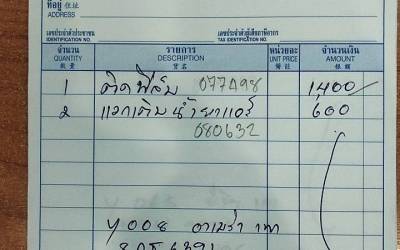 ที่อยู่ 住址
ADDRESS
เลขประจำตัวประชาชน เลขประจำตัวผู้เสียภาษีอากร
IDENTIFICATION NO. TAX IDENTIFICATION NO.
จำนวน รายการ หน่วยละ จำนวนเงิน
QUANTITY DESCRIPTION UNIT PRICE AMOUNT
數量 貨名 單價 銀額
1 ติดฟิล์ม 077498 1,400/
2 แวคเติมน้ำยาแอร์ 600
080632